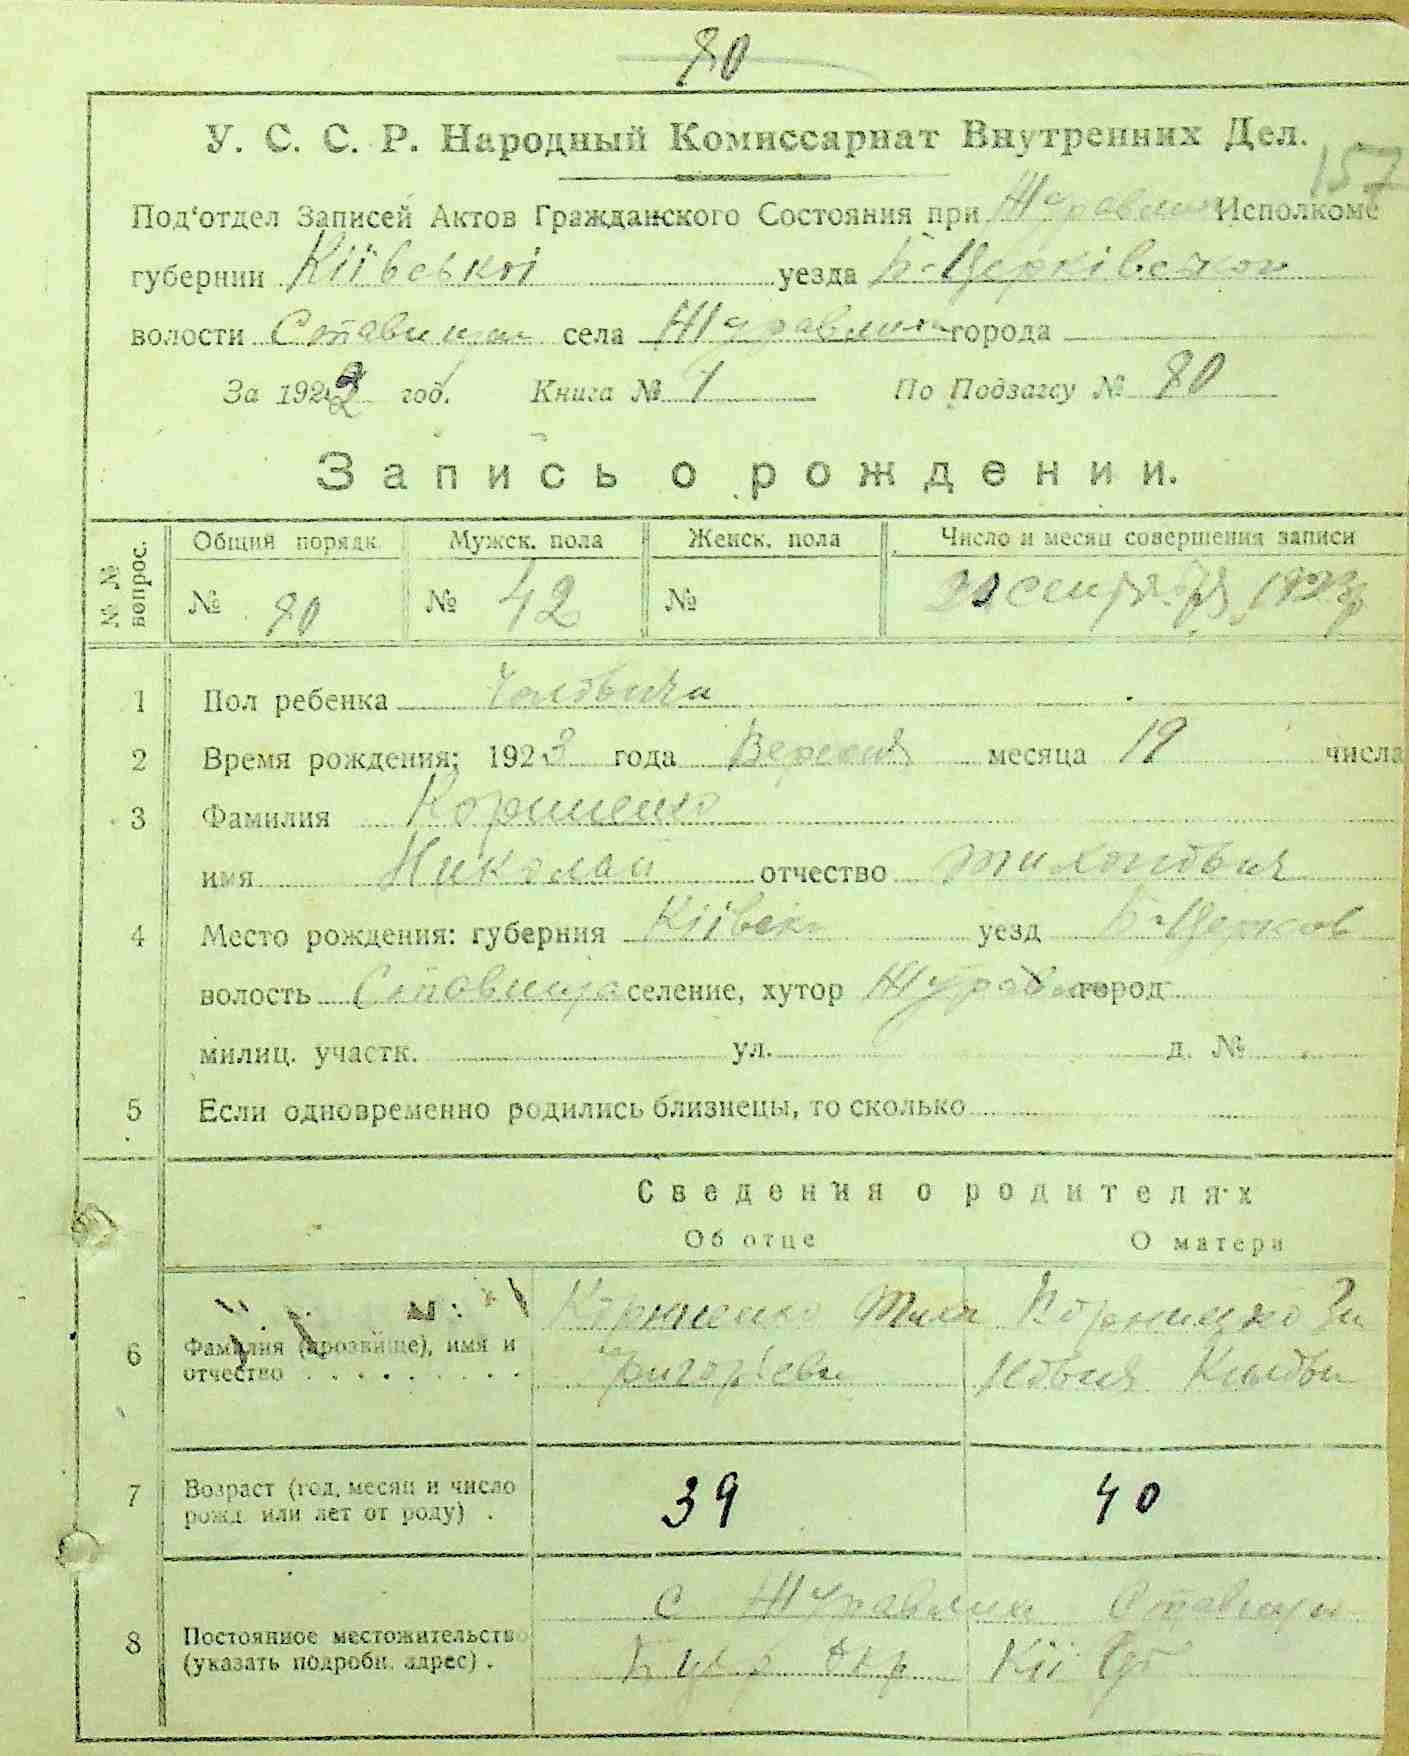 80
У. С. С. Р. Народный Комиссариат Внутренних Дел.
157
Под'отдел Записей Актов Гражданского Состояния при Журавлин Исполкоме
губернии Київської уезда Б-Церківськой
волости Ставищан села Журавлиха города
За 1923 год. Книга № 1 По Подзагсу № 80
Запись о рождении.
№ № вопрос. Общий порядк. Мужск. пола Женск. пола Число и месяц совершения записи
№ 80 № 42 № сентября 1923
1 Пол ребенка
2 Время рождения: 1923 года Вересня месяца 19 числа
3 Фамилия Корниенко
имя Николай отчество Тихонович
4 Место рождения: губерния Київськ уезд Б-Церков
волость Ставища селение, хутор Журавл город
милиц. участк. ул. д. №
5 Если одновременно родились близнецы, то сколько
Сведения о родителях
Об отце О матери
6 Фамилия (прозвище), имя и отчество Корниенко Григорієви Корниенко Зи новия
7 Возраст (год, месяц и число рожд. или лет от роду) . 39 40
8 Постоянное местожительство (указать подробн. адрес) . с Журавлиха Ставищи
Б Цер окр Кіі